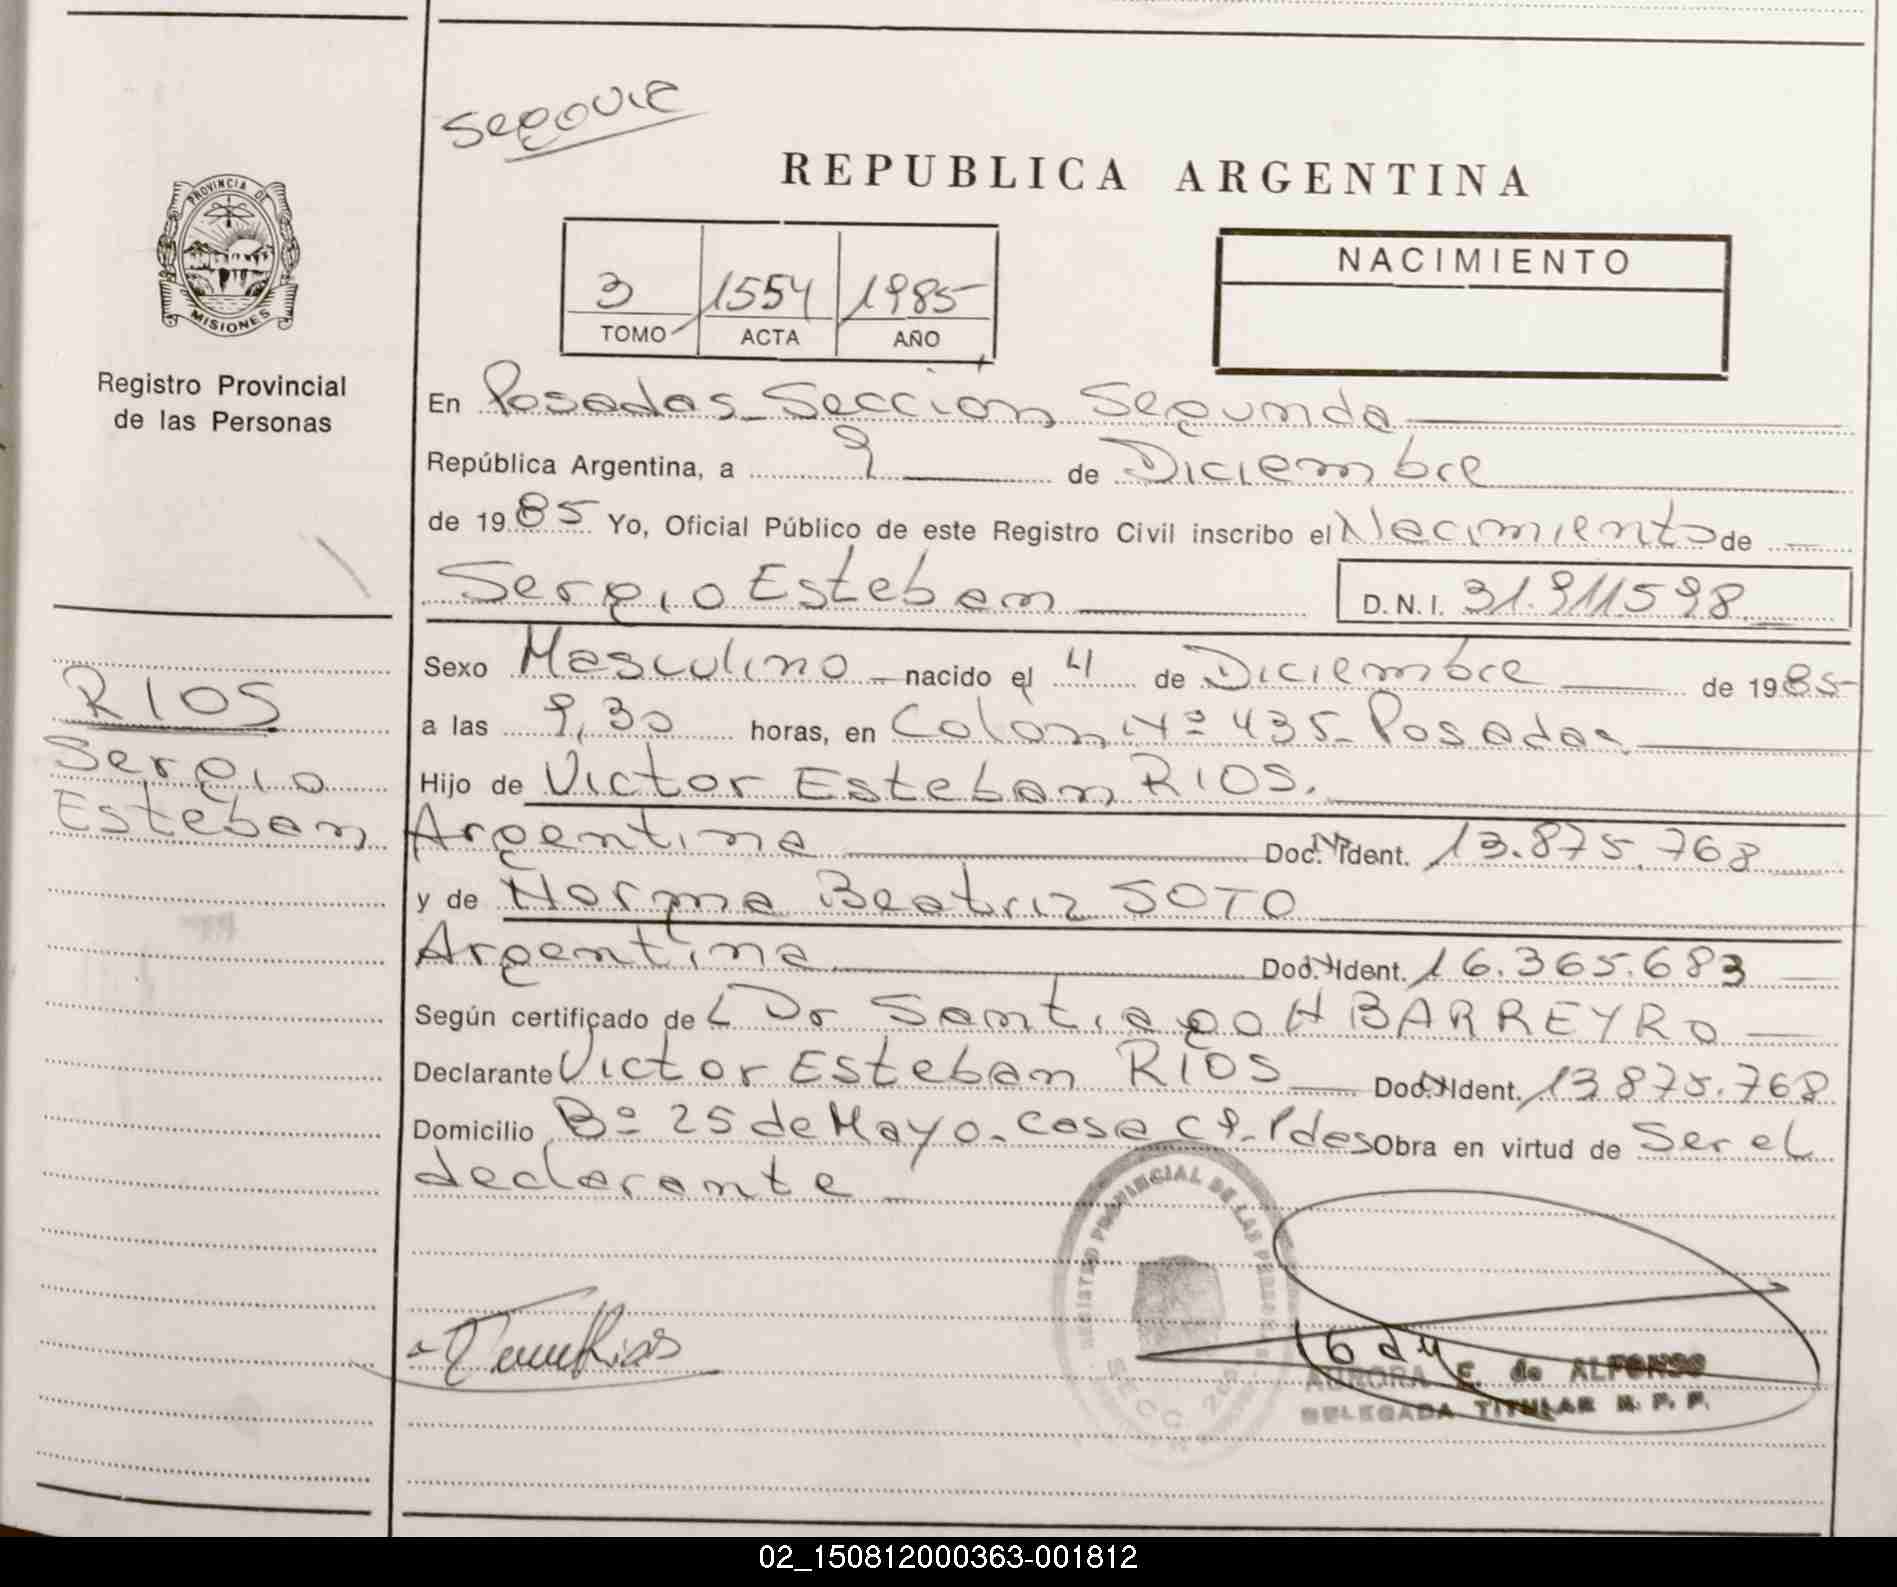 Segovia
REPUBLICA ARGENTINA
PROVINCIA DE
MISIONES
Registro Provincial
de las Personas
3 1554 1985
TOMO ACTA AÑO
NACIMIENTO
En Posadas Sección Segunda
República Argentina, a 9 de Diciembre
de 1985 Yo, Oficial Público de este Registro Civil inscribo el Nacimiento de
Sergio Esteban D.N.I. 31.911598
RIOS
Sergio
Esteban
Sexo Masculino nacido el 4 de Diciembre de 1985
a las 9,30 horas, en Colon Nº 435 Posadas
Hijo de Victor Esteban RIOS.
Argentina Doc. Ident. 13.875.768
y de Norma Beatriz SOTO
Argentina Doc. Ident. 16.365.683
Según certificado de L Dr Santiago H BARREYRO
Declarante Victor Esteban RIOS Doc. Ident. 13875.768
Domicilio Bº 25 de Mayo. Casa C9. Pdas Obra en virtud de Ser el
declarante
REGISTRO PROVINCIAL DE LAS PERSONAS
SECC 2da
AURORA E. de ALFONSO
DELEGADA TITULAR R. P. P.
02_150812000363-001812